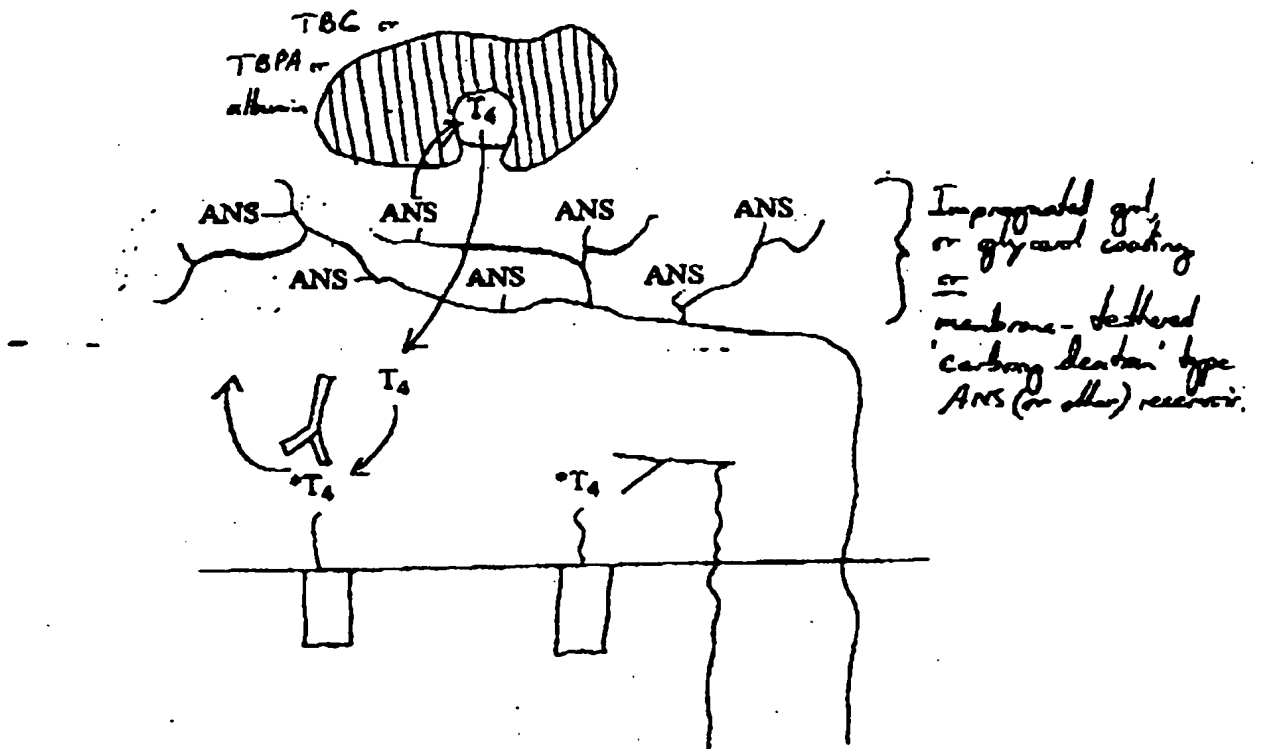 TBG or
TBPA or
albumin
T4
ANS
ANS
ANS
ANS
ANS
ANS
ANS
Impregnated gel,
or glycerol coating
or
membrane-tethered
'carboxy dextran' type
ANS (or other) reservoir.
T4
*T4
*T4